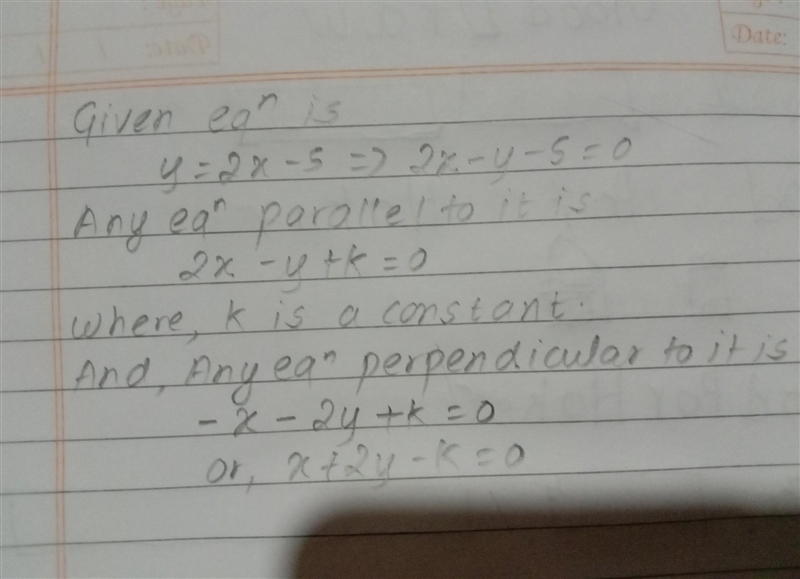 Date:
Given eqⁿ is
y = 2x - 5 => 2x - y - 5 = 0
Any eqⁿ parallel to it is
2x - y + k = 0
where, k is a constant.
And, Any eqⁿ perpendicular to it is
- x - 2y + k = 0
or, x + 2y - k = 0